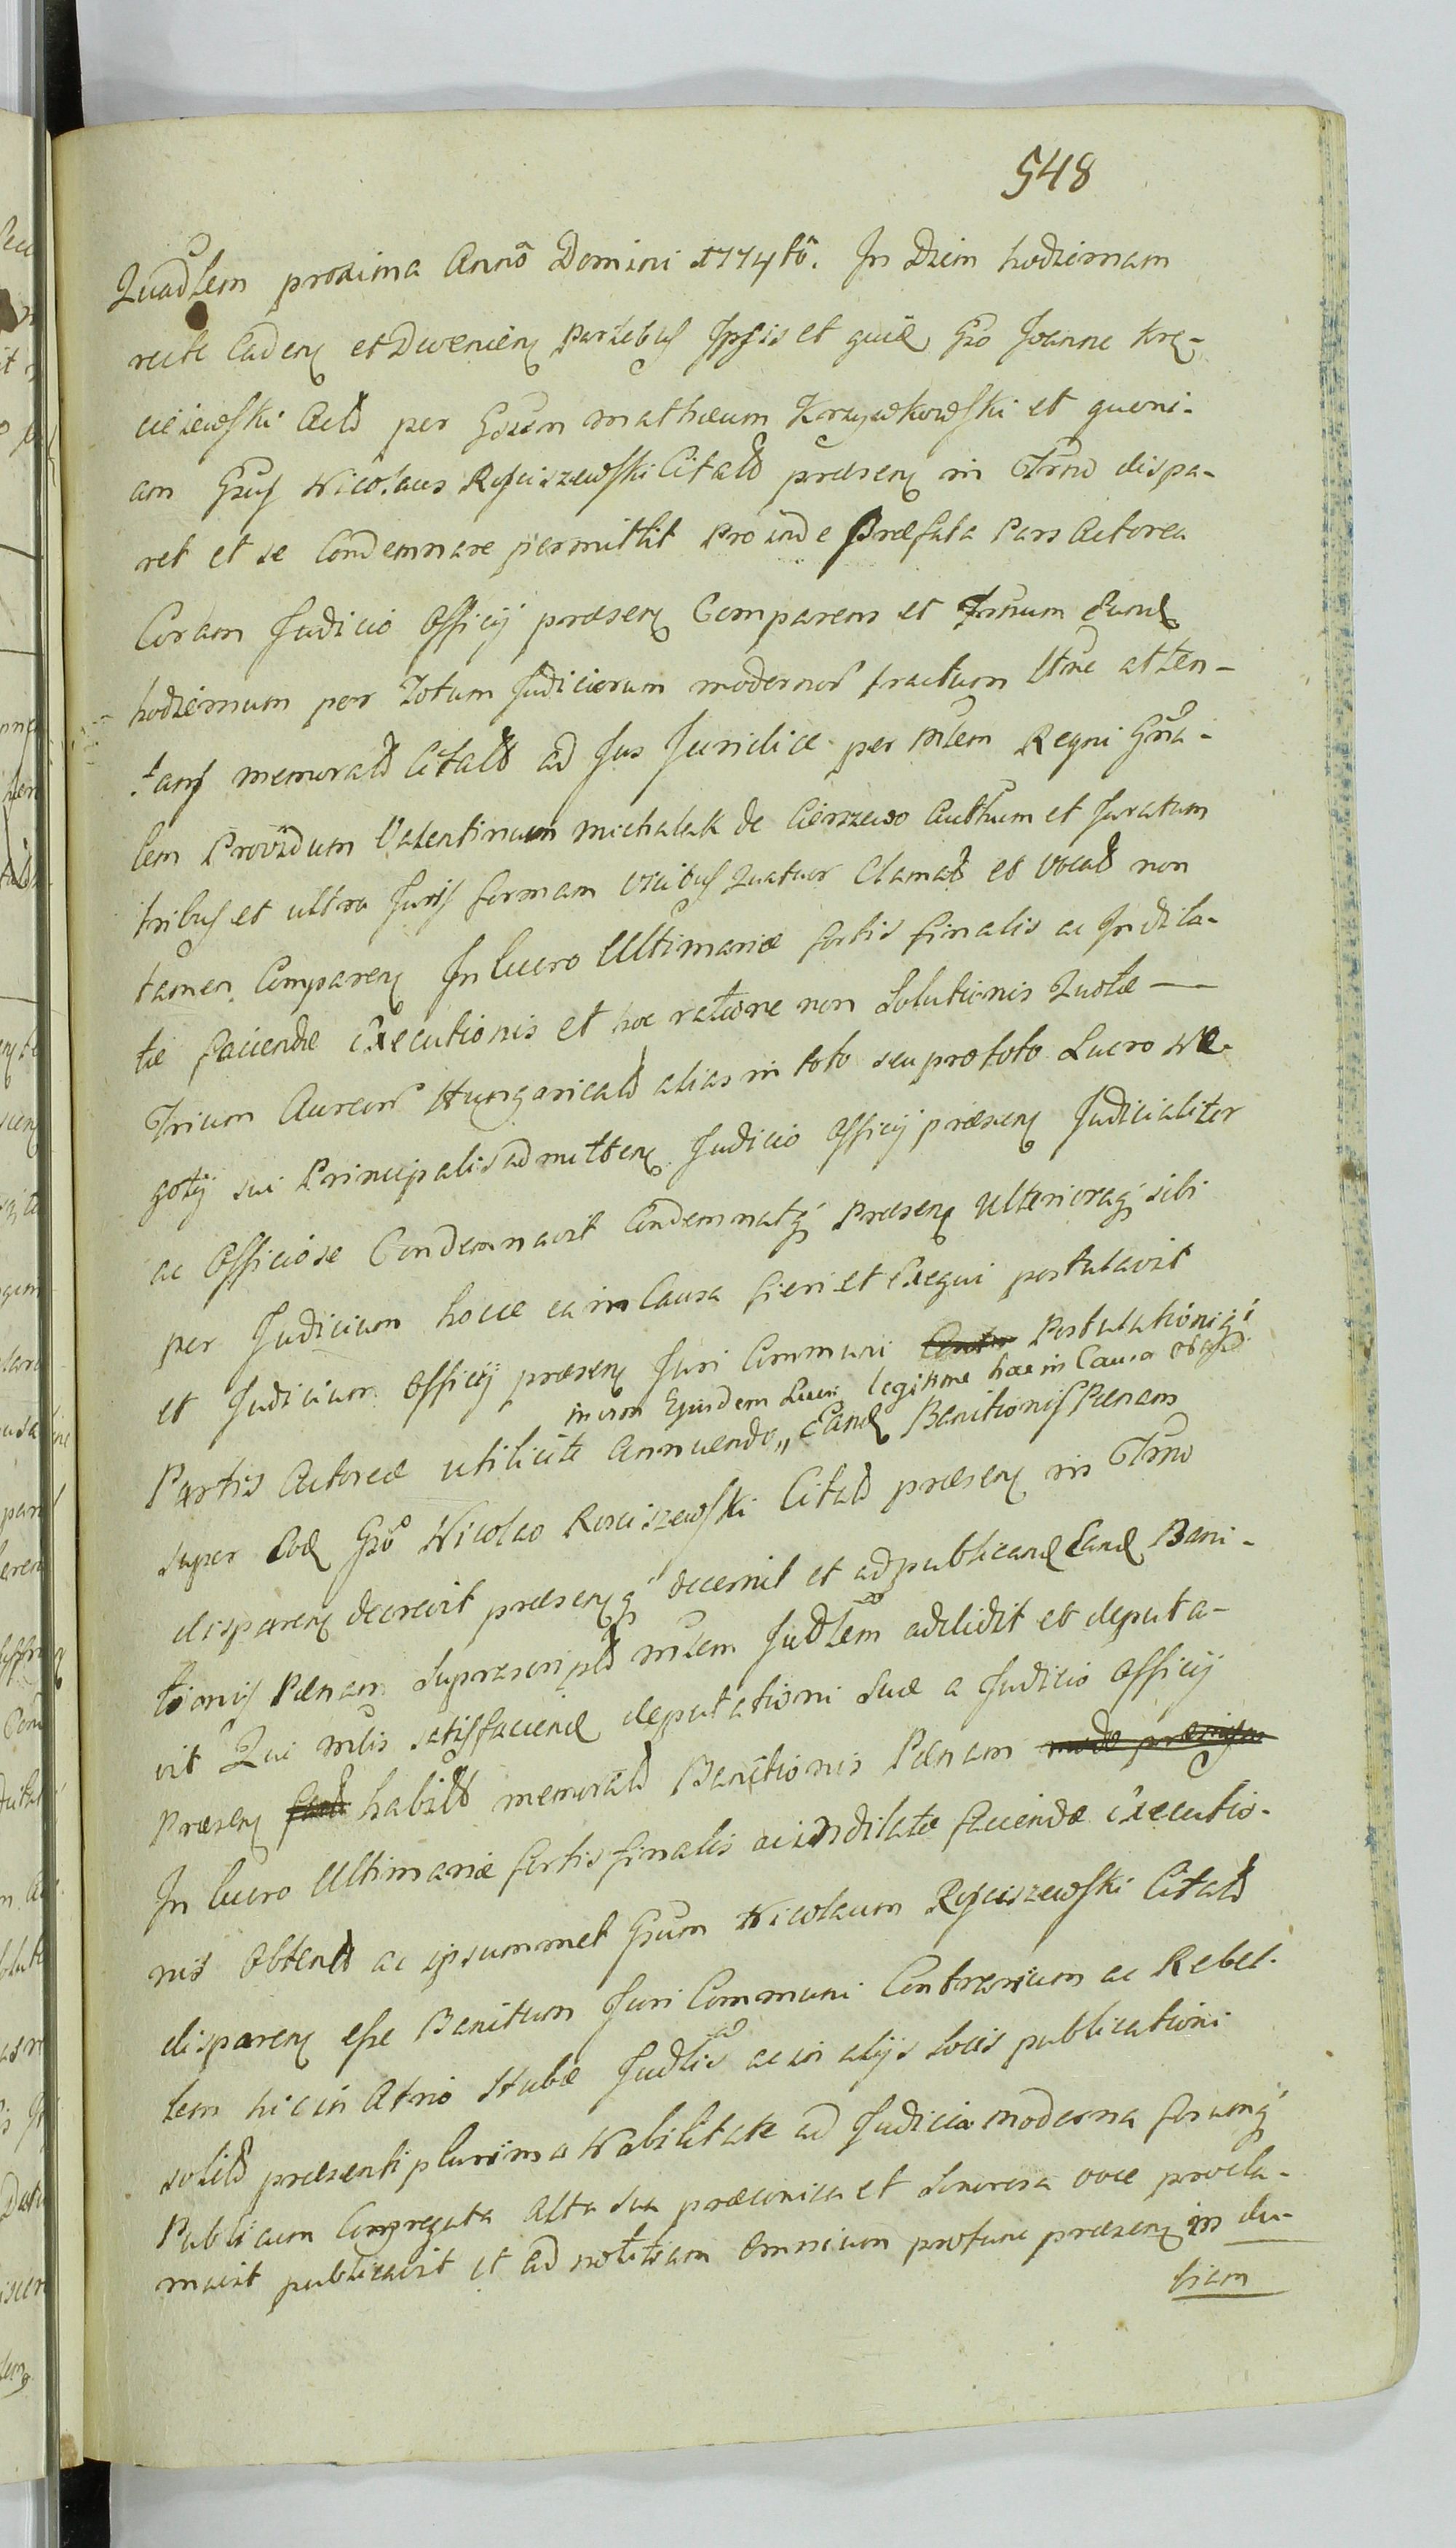 548
Quadlem proxima Anno Domini 1774to. In Diem hodiernam
recte Caden et Devenien partibus Ipsis et quid Gso Joanne Krę-
ciewski Actd per Gosum Mathæum Krzywkowski et quoni-
am Gsus Nicolaus Rosciszewski Citatd præsen in Trno dispa-
ret et se Condemnare permittit Proinde Præfata Pars Actorea
Coram Judicio Officij præsen Comparens et Trnum Eund
hodiernum per Totum Judiciorum modernor tractum ltme atten-
tans memoratd Citatd ad Jus Juridice per Mlem Regni Gnra-
lem Providum Valentinum Michalak de Cierszewo Authum et Juratum
tribus et ultra Juris formam vicibus Quatuor Clamatd et Vocatd non
tamen Comparen In lucro Ultimariæ fortis finalis ac Indila-
tæ faciendæ Executionis et hoc ratione non Solutionis Quotæ
Trium Aureor Hungaricald alias in toto seu pro toto Lucro Ne-
gotij sui Principalis admitten Judicio Officij præsen Judicialiter
ac Officiose Condemnavit Condemnatq præsen Ulterioraq sibi
per Judicium hocce ea in Causa fieri et Exequi postulavit
et Judicium Officij præsen Juri Communi Postulationiq
in vim Ejusdem Lucri legitime hac in Causa
Partis Actoreæ utilicite Annuendo,, Eand Banitionis Pænam
super Eod Gso Nicolao Rosciszewski Citatd præsen in Trno
disparen decrevit præsenq decernit et ad publicand Eand Bani-
tionis Pænam Suprascriptd Mlem Judlem addidit et deputa-
vit Qui Mlis satisfaciend deputationi Suæ a Judicio Officij
Præsen habitd memoratd Banitionis Pænam
In lucro Ultimariæ fortis finalis ac indilatæ faciendæ Executio-
nis Obtentd ac ipsummet Gsum Nicolaum Rosciszewski Citatd
disparen esse Banitum Juri Communi Contrarium ac Rebel-
lem hic in Atrio Stubæ Judlis ac in alijs locis publicationi
solitd præsenti plurima Nobilitate ad Judicia moderna forumq
Publicum Congregata Alta sua præconica et Sonorosa voce procla-
mavit publicavit et ad notitiam Omnium protunc præsen in du-
biam